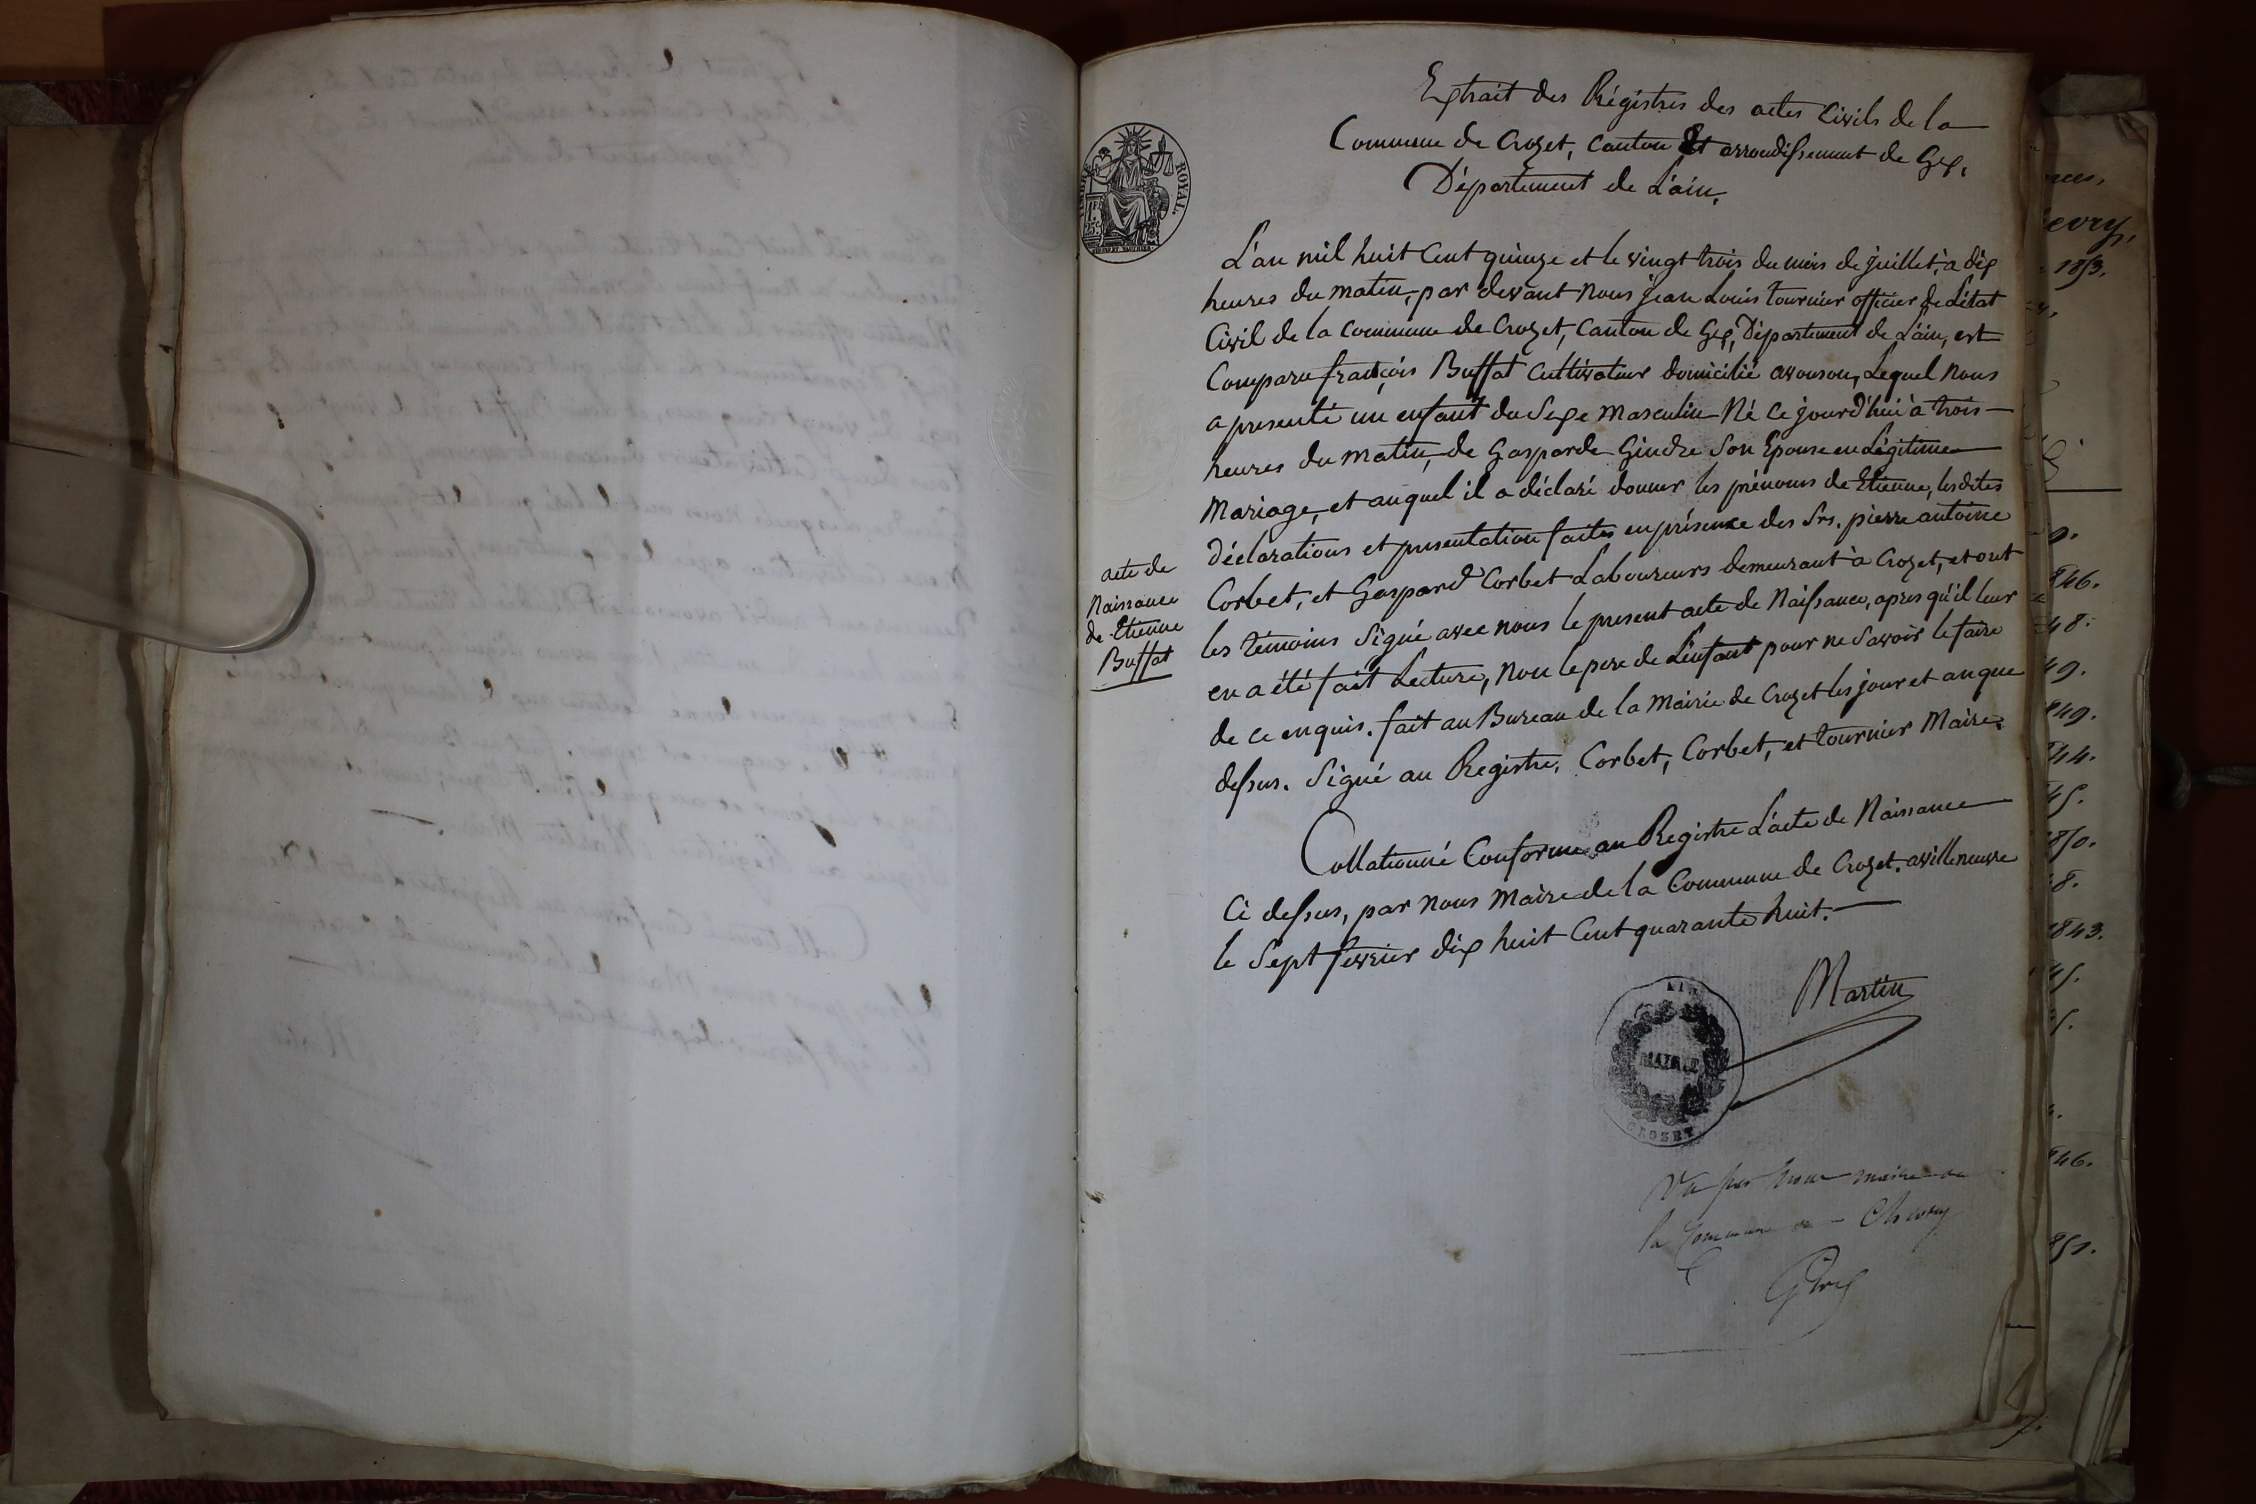 Extrait des Régistres des actes Civils de la
Commune de Crozet, Canton Et arrondissement de Gex,
Département de L'ain,
TIMBRE ROYAL.
L'an mil huit Cent quinze et le vingt trois du mois de juillet, a dix
heures du matin, par devant Nous jean Louis Tournier officier de L'état
Civil de la Commune de Crozet, Canton de Gex, Département de L'ain, est
Comparu françois Buffat Cultivateur domicilié avouson, Lequel Nous
a presenté un enfant du Sexe Masculin Né Ce jourd'hui à trois
heures du matin, de Gasparde Gindre Son Epouse en Légitime
Mariage, et auquel il a déclaré donner les prénoms de Etienne, lesdites
Déclarations et presentation faites en présence des Srs. pierre antoine
Corbet, et Gaspard Corbet Laboureurs demeurant à Crozet, et ont
les témoins Signé avec nous le present acte de Naissance, apres qu'il leur
en a été fait Lecture, Non le pere de L'enfant pour ne Savoir le faire
de ce enquis. fait au Bureau de la Mairie de Crozet les jour et an que
dessus. Signé au Registre, Corbet, Corbet, et Tournier Maire.
acte de
Naissance
de Etienne
Buffat
Collationné Conforme au Registre L'acte de Naissance
Ci dessus, par Nous Maire de la Commune de Crozet. avilleneuve
le Sept fevrier dix huit Cent quarante huit.
Martin
AIN
MAIRIE
CROZET
Vu par Nous maire de
la Commune de Chevry
evry,
1853.
846.
48.
49.
849.
844.
45.
850.
8.
1843.
45.
846.
851.